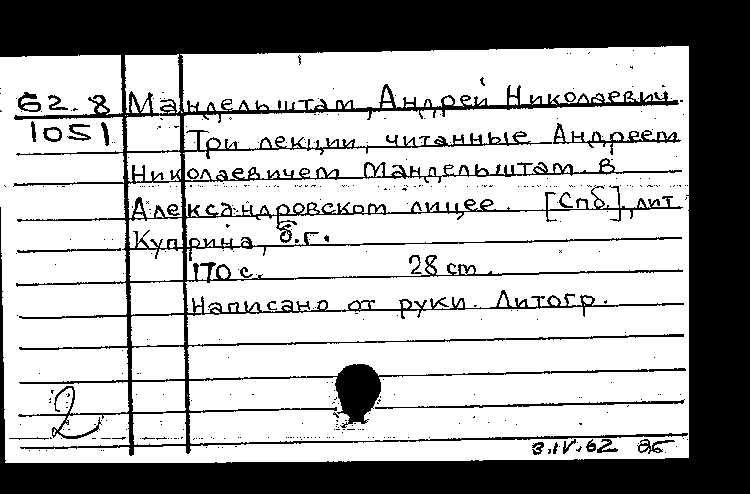 62.8 Мандельштам, Андрей Николаевич.
1051 Три лекции, читанные Андреем
Николаевичем Мандельштам. в
Александровском лицее. [Спб.], лит.
Куприна, б.г.
170 с. 28 cm.
Написано от руки. Литогр.
2
3.IV.62